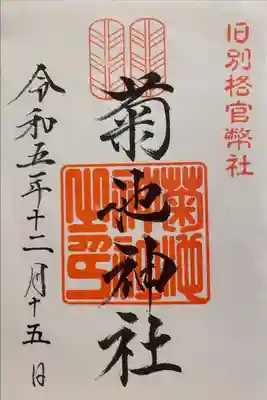 旧別格官幣社
菊池神社
菊池神社之印
令和五年十二月十五日